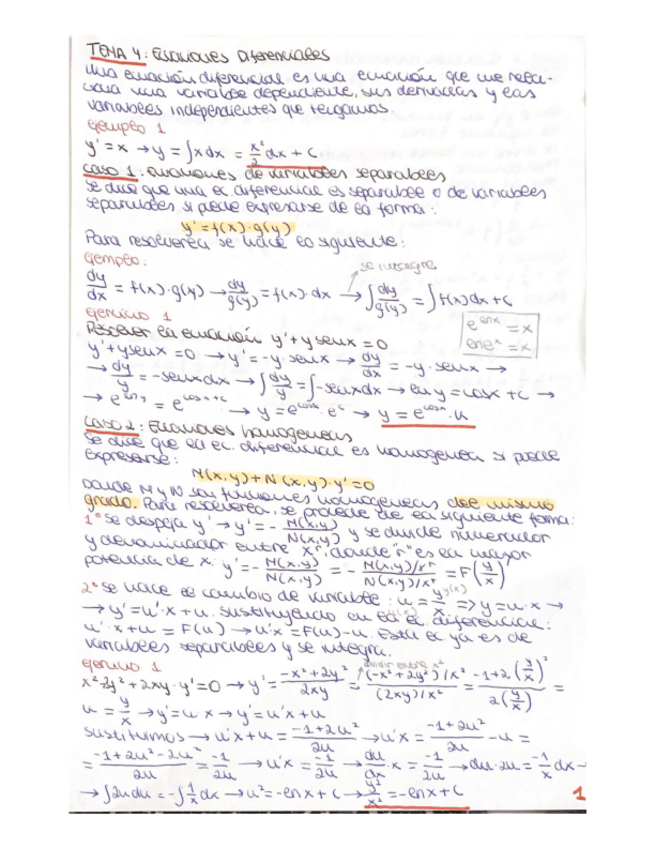 TEMA 4: Ecuaciones Diferenciales
Una ecuación diferencial es una ecuación que me rela-
ciona una variable dependiente, sus derivadas y las
variables independientes que tengamos.
ejemplo 1
y' = x → y = ∫x dx = x²/2 dx + C
Caso 1: ecuaciones de variables separables
se dice que una ec. diferencial es separable o de variables
separables si puede expresarse de la forma:
y' = f(x)·g(y)
Para resolverla se hace lo siguiente:
ejemplo:
se integra
dy/dx = f(x)·g(y) → dy/g(y) = f(x)·dx → ∫dy/g(y) = ∫f(x)dx + C
ejercicio 1
e^lnx = x
ln e^x = x
Resolver la ecuación y' + y senx = 0
y' + y senx = 0 → y' = -y·senx → dy/dx = -y·senx →
→ dy/y = -senxdx → ∫dy/y = ∫-senxdx → ln y = cosx + C →
→ e^lny = e^cosx+c → y = e^cosx·e^c → y = e^cosx·k
Caso 2: Ecuaciones homogéneas
Se dice que la ec. diferencial es homogénea si puede
expresarse:
M(x,y) + N(x,y)·y' = 0
donde M y N son funciones homogéneas del mismo
grado. Para resolverla, se procede de la siguiente forma:
1º se despeja y' → y' = - M(x,y)/N(x,y) y se divide numerador
y denominador entre x^r, donde "r" es la mayor
potencia de x. y' = - M(x,y)/N(x,y) = - M(x,y)/x^r / N(x,y)/x^r = F(y/x)
2º se hace el cambio de variable: u = y/x => y = u·x →
→ y' = u'·x + u. Sustituyendo en la ec. diferencial:
u'·x + u = F(u) → u'x = F(u) - u. Esta ec. ya es de
variables separables y se integra.
ejercicio 1
dividir entre x²
x² - 2y² + 2xy·y' = 0 → y' = -x² + 2y² / 2xy = (-x² + 2y²)/x² / (2xy)/x² = -1 + 2(y/x)² / 2(y/x) =
u = y/x → y = u·x → y' = u'x + u
sustituimos → u'x + u = -1 + 2u² / 2u → u'x = -1 + 2u² / 2u - u =
= -1 + 2u² - 2u² / 2u = -1/2u → u'x = -1/2u → du/dx·x = -1/2u → du·2u = -1/x dx -
→ ∫2udu = -∫1/x dx → u² = -ln x + C → y²/x² = -ln x + C
1